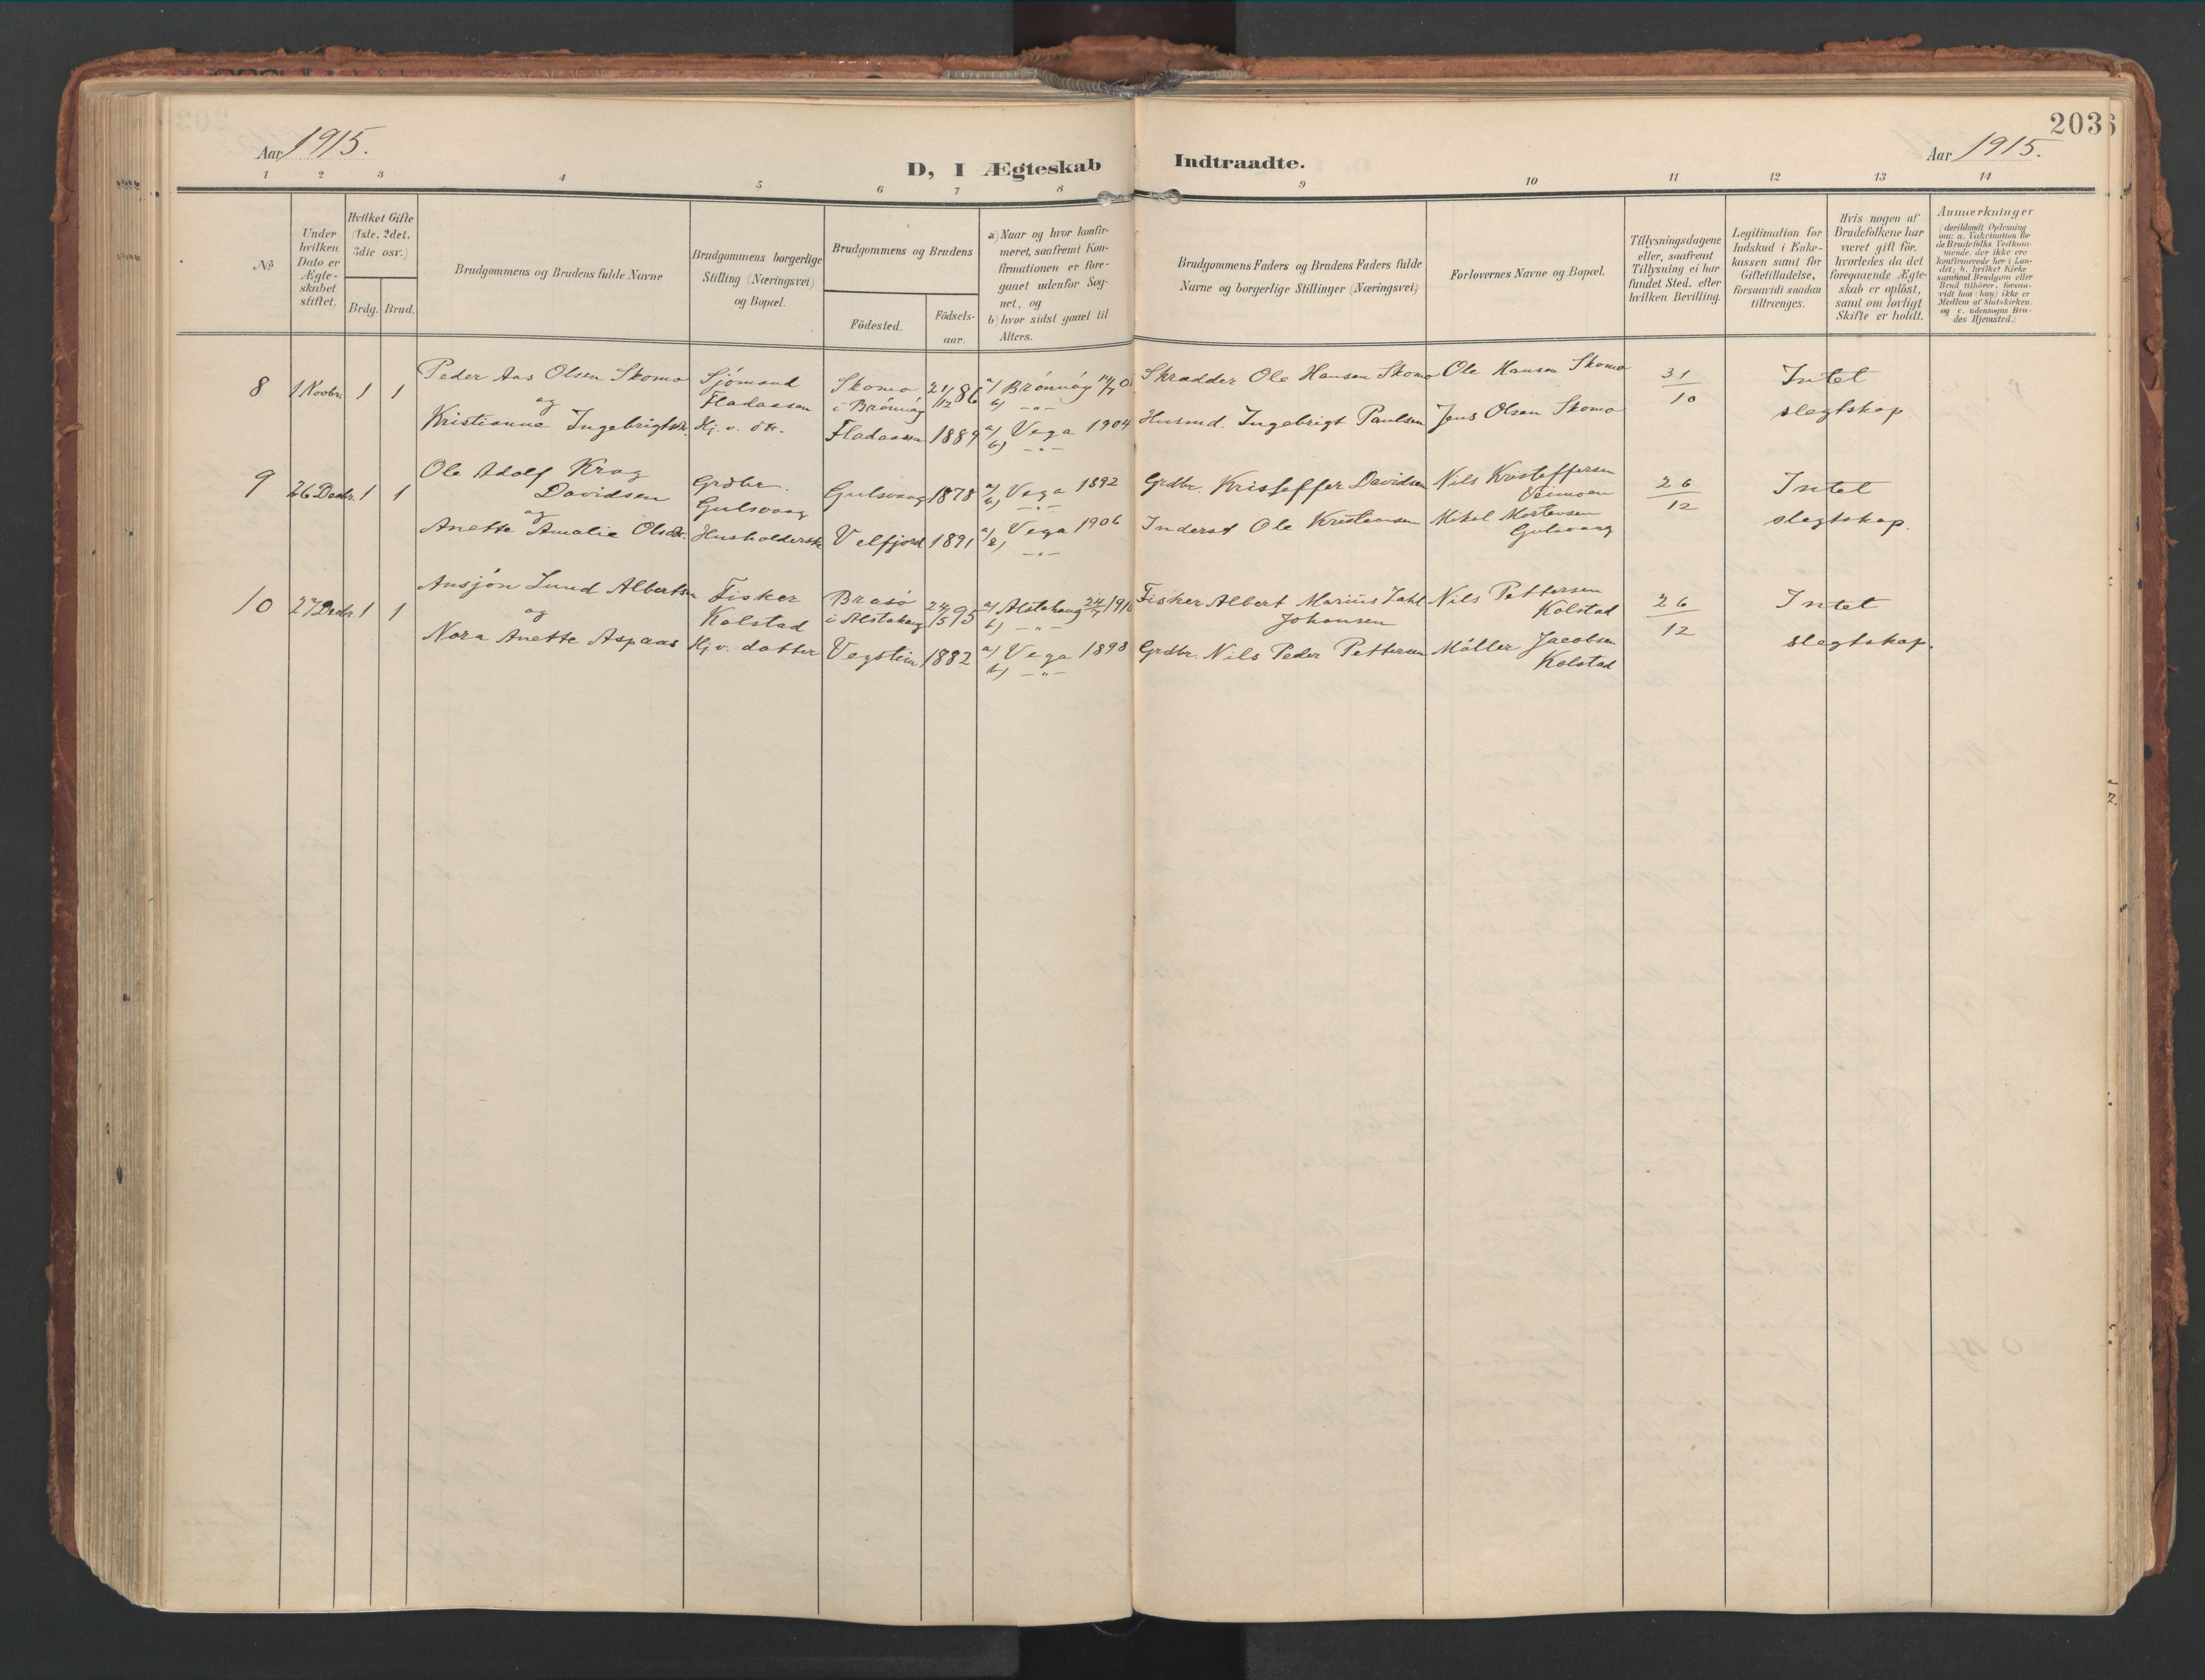 203
Aar 1915.
D, I Ægteskab Indtraadte.
Aar 1915.
1 2 3 4 5 6 7 8 9 10 11 12 13 14
№
Under
hvilken
Dato er
Ægte-
skabet
stiftet.
Hvilket Gifte
(1ste, 2det,
3die osv.)
Brdg. Brud.
Brudgommens og Brudens fulde Navne
Brudgommens borgerlige
Stilling (Næringsvei)
og Bopæl.
Brudgommens og Brudens
Födested.
Födsels-
aar.
a) Naar og hvor konfir-
meret, saafremt Kon-
firmationen er fore-
gaaet udenfor Sog-
net, og
b) hvor sidst gaaet til
Alters.
Brudgommens Faders og Brudens Faders fulde
Navne og borgerlige Stillinger (Næringsvei)
Forlovernes Navne og Bopæl.
Tillysningsdagene
eller, saafremt
Tillysning ei har
fundet Sted, efter
hvilken Bevilling.
Legitimation for
Indskud i Enke-
kassen samt for
Giftetilladelse,
forsaavidt saadan
tiltrænges.
Hvis nogen af
Brudefolkene har
været gift før,
hvorledes da det
foregaaende Ægte-
skab er opløst,
samt om lovligt
Skifte er holdt.
Anmerkninger
(deriblandt Oplysning
om: a. Vakcination for
de Brudefolks Vedkom-
mende, der ikke ere
konfirmerede her i Lan-
det; b. hvilket Kirke
samfund Brudgom eller
Brud tilhører, forsaa-
vidt han (hun) ikke er
Medlem af Statskirken,
og c. udensogns Bru-
des Hjemsted.)
8 1 Novbr 1 1 Peder Aas Olsen Skomo Sjömand Skomo 21/12 86 a) Brönnöy Skrædder Ole Hansen Skomo Ole Hansen Skomo 31/10 Intet
og Fladaasen i Brönnöy b) -"- slegtskap
Kristianne Ingebrigtsdr. Hj. v. dtr. Fladaasen 1889 a) Vega 1904 Husmd. Ingebrigt Paulsen Jens Olsen Skomo
b) -"-
9 26 Decbr. 1 1 Ole Adolf Krog Grdbr. Gulsvaag 1878 a) Vega 1892 Grdbr. Kristoffer Davidsen Nils Kristoffersen 26/12 Intet
Davidsen Gulsvaag b) -"-
og Mikal Mortensen slegtskap.
Anette Amalie Olsdtr. Husholderske Velfjord 1891 a) Vega 1906 Inderst Ole Kristensen Gulsvaag
-"-
10 27 Decbr 1 1 Ansjön Lund Albertsen Fisker Brasö 24/5 95 a) Alstahaug 24/7 1910 Fisker Albert Marius Zahl Nils Pettersen 26/12 Intet
og Kolstad i Alstahaug b) -"- Johansen Kolstad
Nora Anette Aspaas Hj. v. datter Vegstein 1882 a) Vega 1898 Grdbr. Nils Peder Pettersen Möller Jacobsen slegtskap.
b) -"- Kolstad